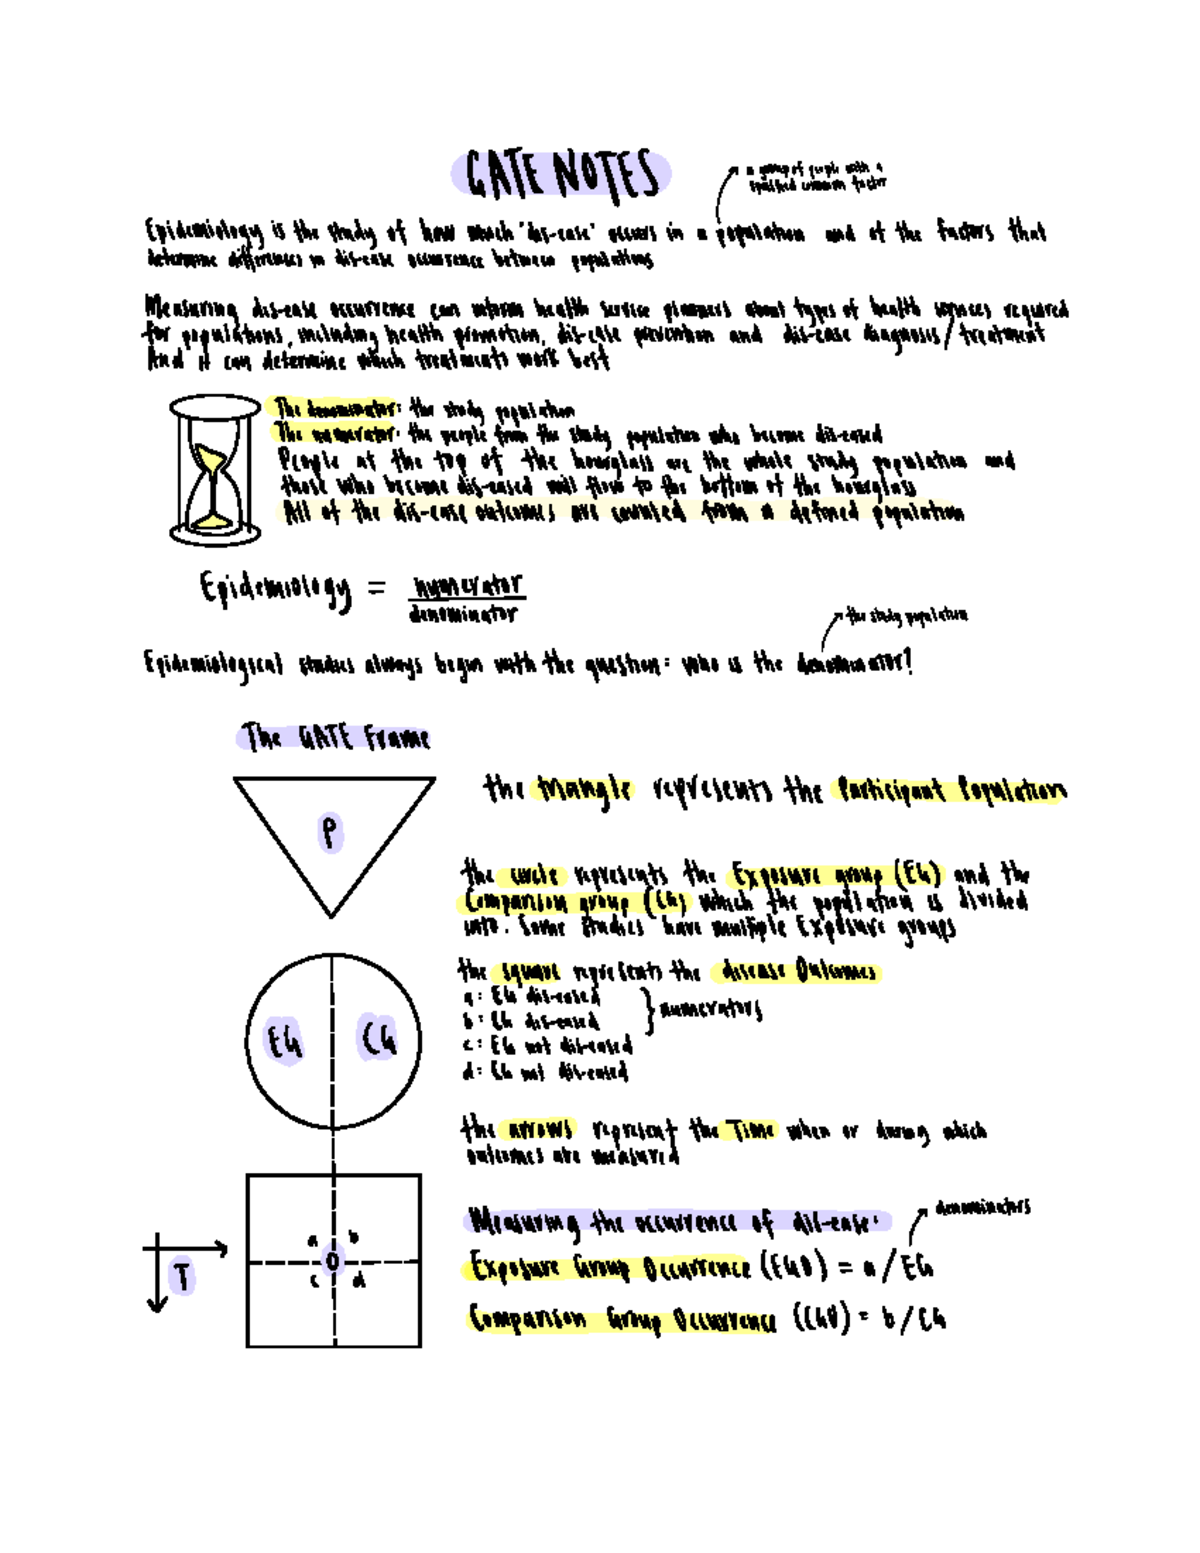 GATE NOTES
a group of people with a
specified common factor
Epidemiology is the study of how much 'dis-ease' occurs in a population and of the factors that
determine differences in dis-ease occurrence between populations
Measuring dis-ease occurrence can inform health service planners about types of health services required
for populations, including health promotion, dis-ease prevention and dis-ease diagnosis/treatment
And it can determine which treatments work best
The denominator: the study population
The numerator: the people from the study population who become dis-eased
People at the top of the hourglass are the whole study population and
those who become dis-eased will flow to the bottom of the hourglass
All of the dis-ease outcomes are counted from a defined population
Epidemiology = numerator
denominator
the study population
Epidemiological studies always begin with the question: who is the denominator?
The GATE Frame
the triangle represents the Participant Population
P
the circle represents the Exposure group (EG) and the
Comparison group (CG) which the population is divided
into. Some studies have multiple Exposure groups
EG CG
the square represents the disease Outcomes
a: EG dis-eased
b: CG dis-eased
numerators
c: EG not dis-eased
d: CG not dis-eased
the arrows represent the Time when or during which
outcomes are measured
a b
O
c d
T
Measuring the occurrence of dis-ease:
denominators
Exposure Group Occurrence (EGO) = a/EG
Comparison Group Occurrence (CGO) = b/CG